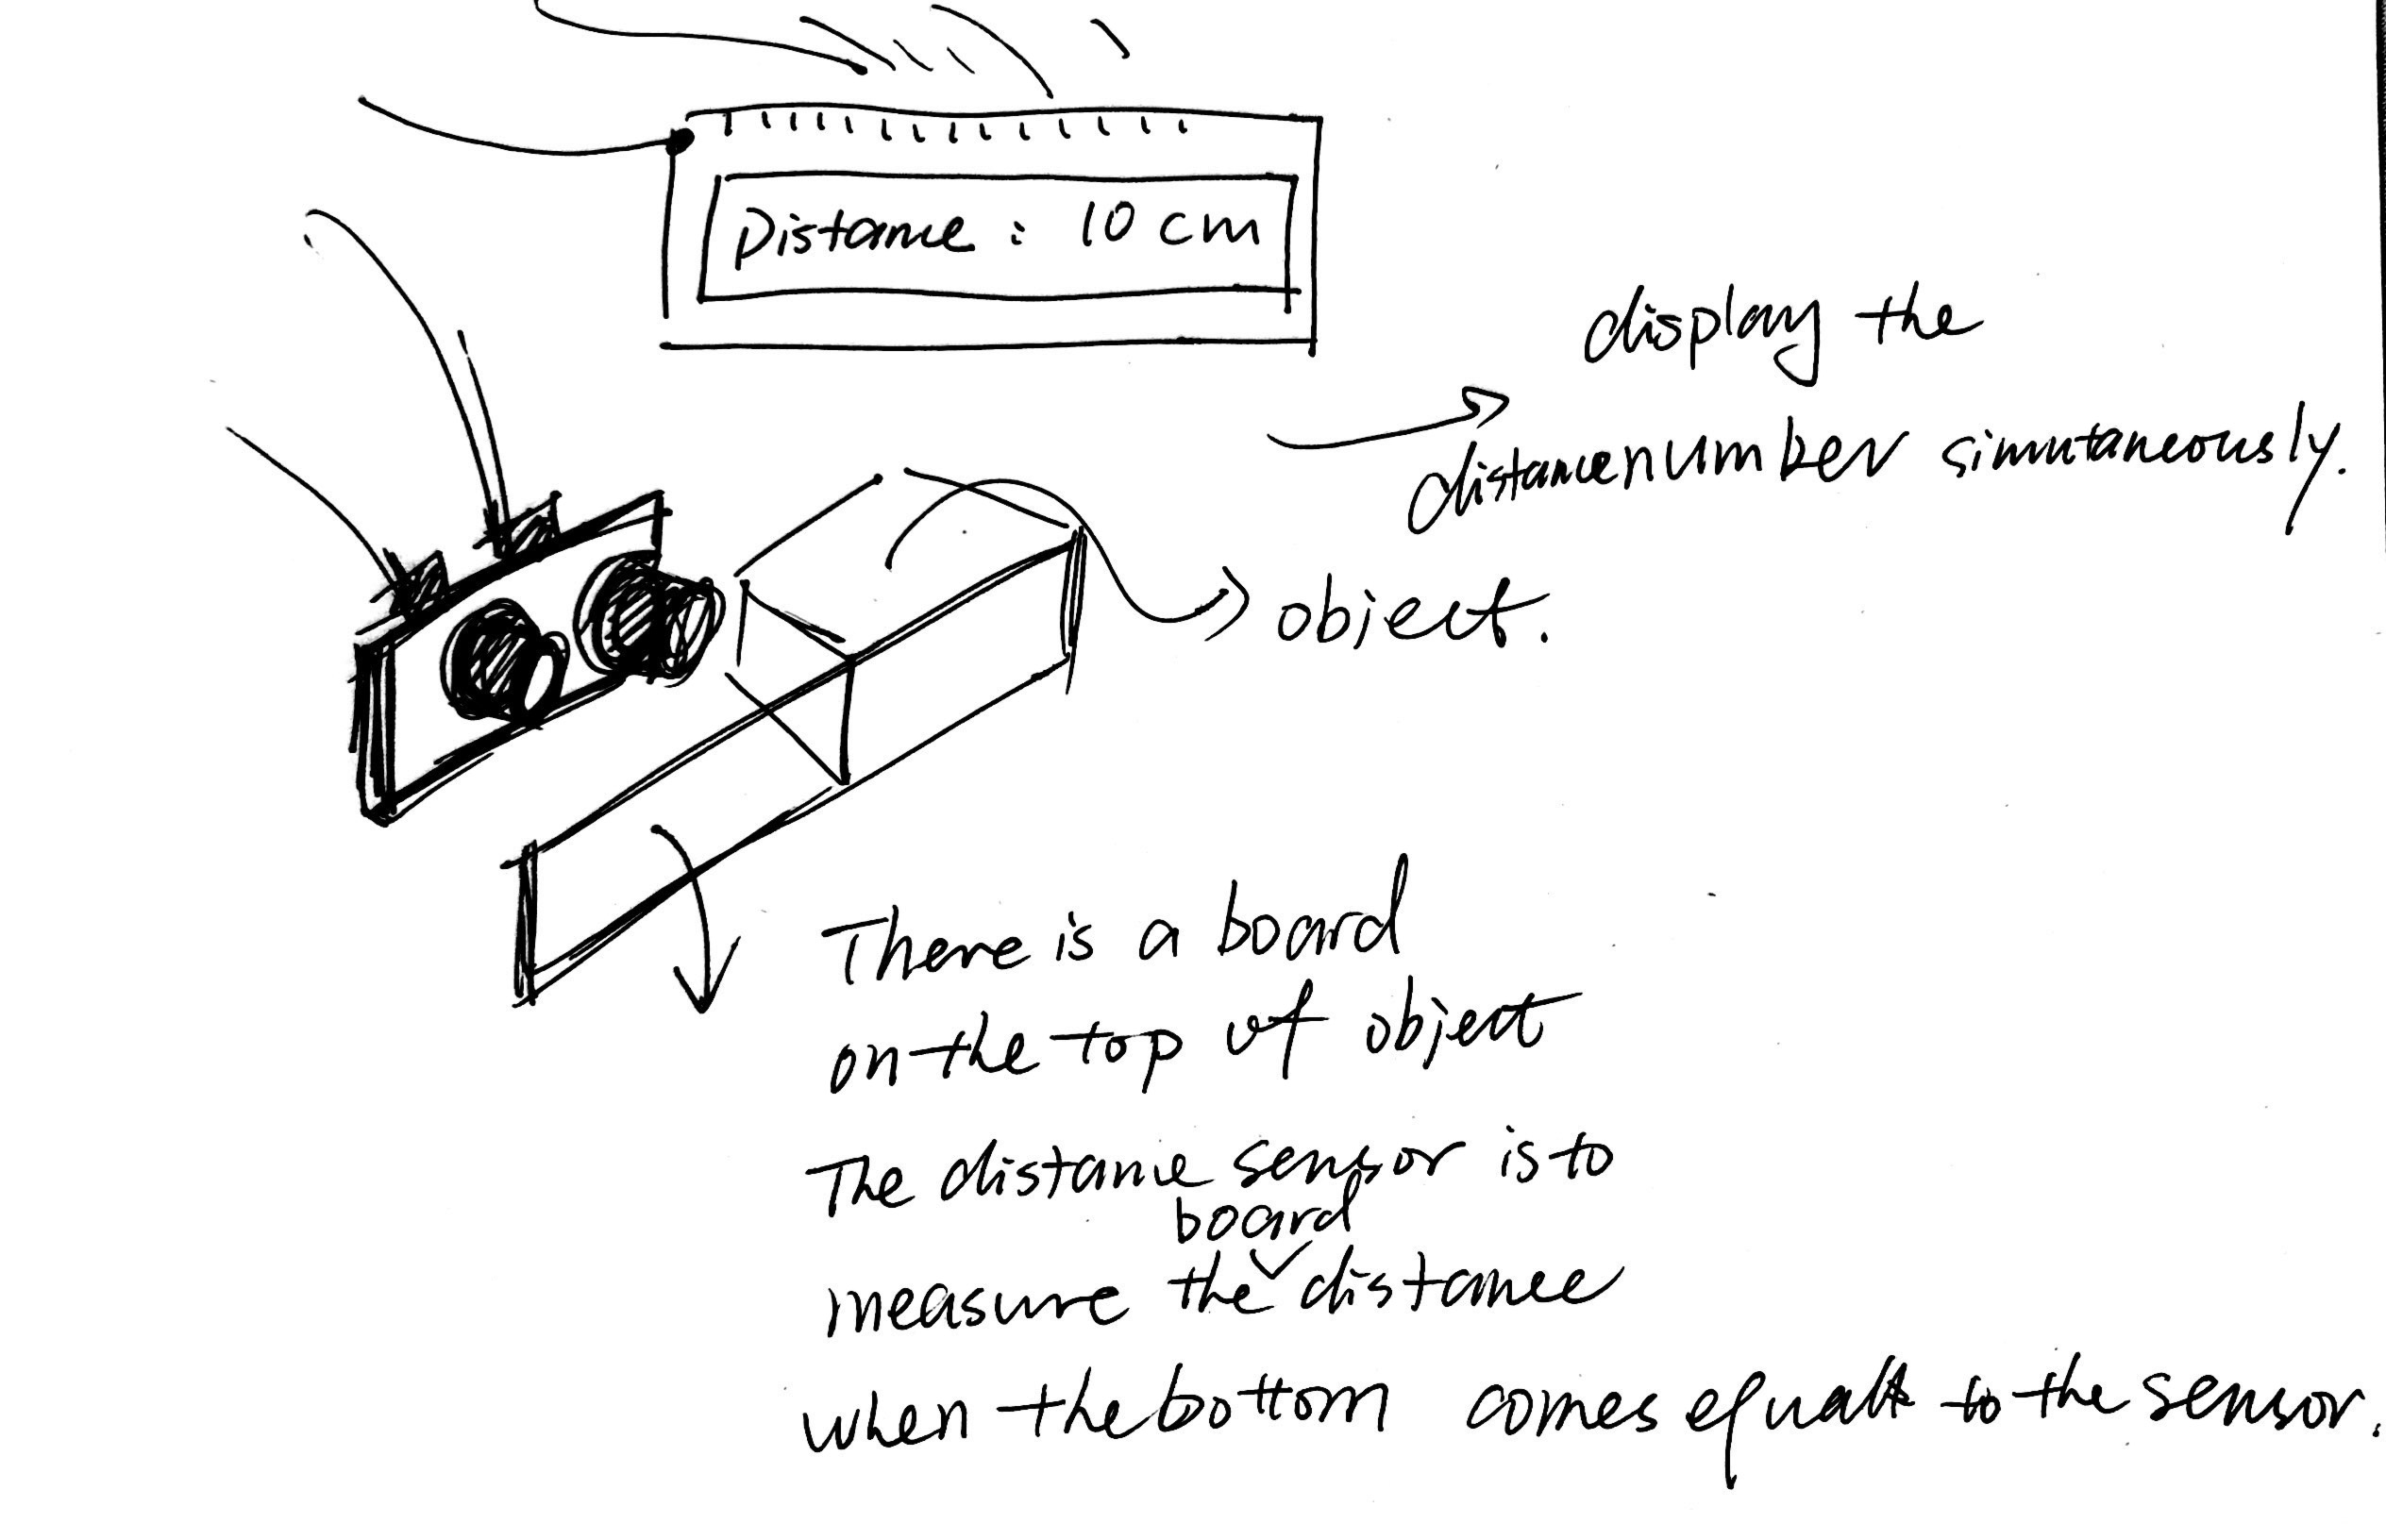 Distance : 10 cm
display the
distance number simutaneously.
object.
There is a board
on the top of object
The distance sensor is to
board
measure the distance
when the bottom comes equals to the sensor.